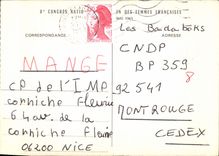 8e CONGRES NATIO
ON DES FEMMES FRANÇAISES
CORRESPONDANCE
ADRESSE
Les Badaboks
CNDP
MANGE
BP 359
8
CP de l'IMP
92 541
corniche Fleurie
MONTROUGE
64 av. de la
CEDEX
corniche Fleurie
06200 NICE